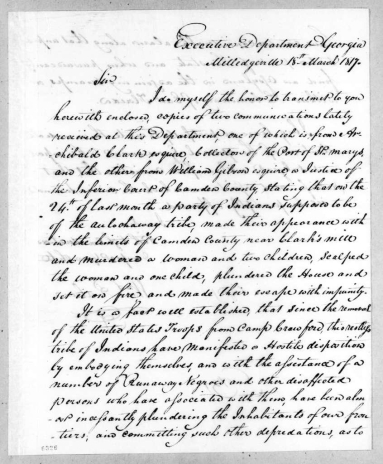 Executive Department Georgia
Milledgeville 18th March 1817.
Sir
I do myself the honor to transmit to you
herewith enclosed, copies of two communications lately
received at this Department one of which is from Ar-
chibald Clark esquire Collector of the Port of St. marys
and the other from William Gibson esquire a Justice of
the Inferior Court of Camden County Stating that on the
24th of last month a party of Indians supposed to be
of the autochaway tribe, made their appearance with
in the limits of Camden County near Clark's mill
and murdered a woman and two children, scalped
the woman and one child, plundered the House and
set it on fire and made their escape with impunity.
It is a fact well established, that since the removal
of the United States Troops from Camp Crawford this restless
tribe of Indians have manifested a Hostile disposition
by embodying themselves, and with the assistance of a
number of Runaway Negroes and other disaffected
persons who have associated with them, have been alm-
ost incessantly plundering the Inhabitants of our fron-
tiers, and committing such other depredations, as to